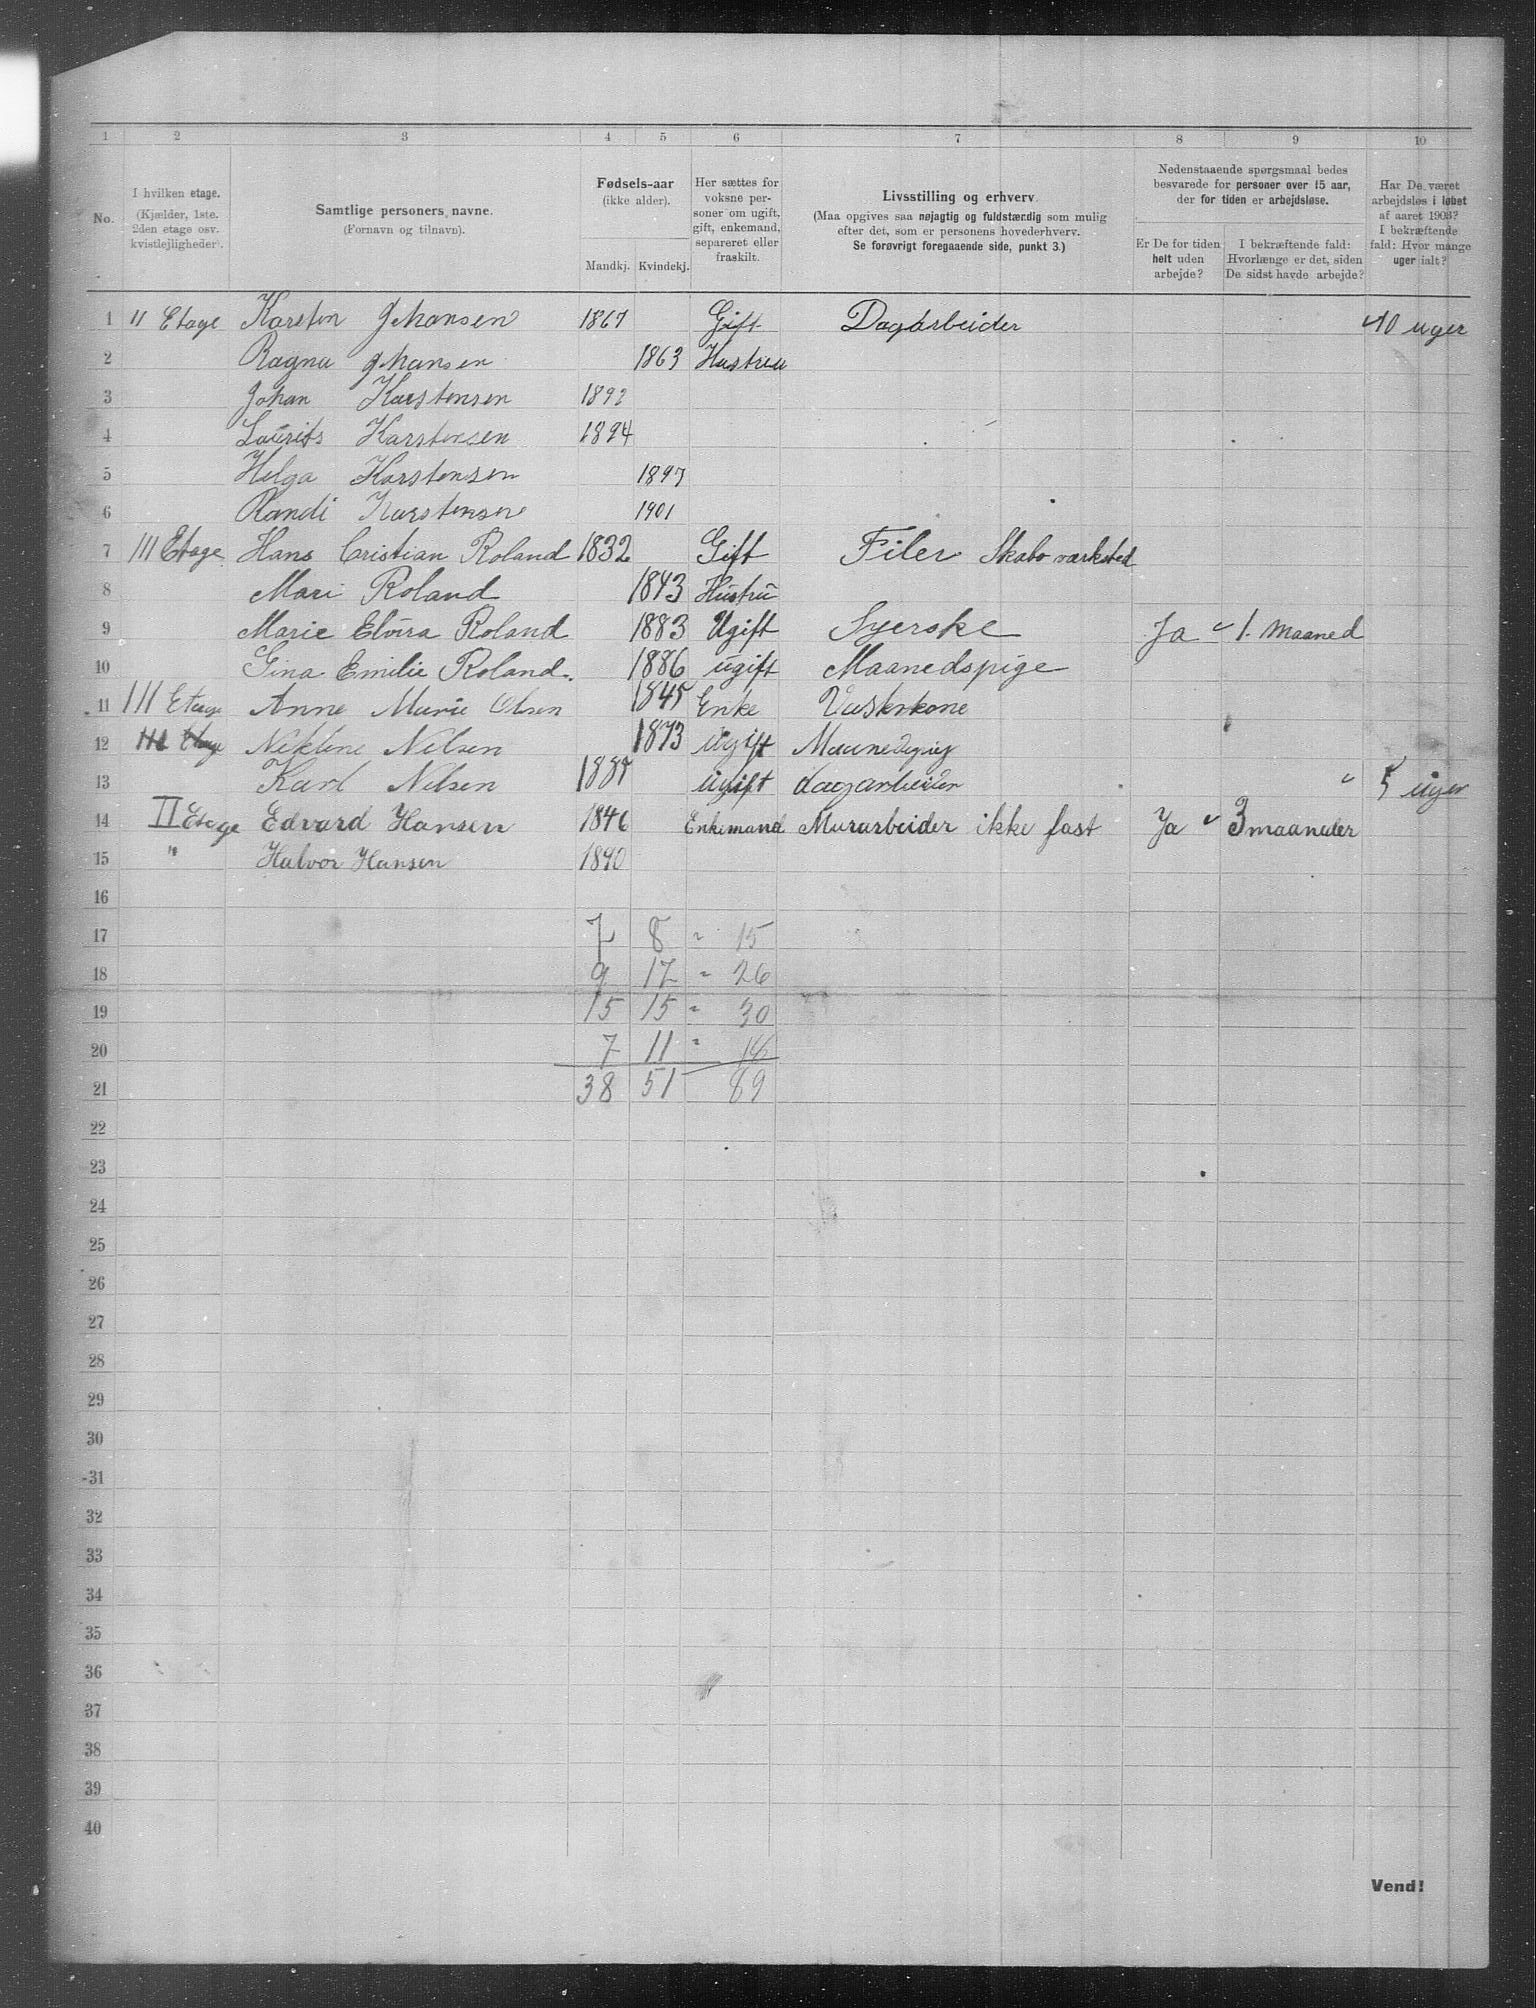 1 2 3 4 5 6 7 8 9 10
No.
I hvilken etage.
(Kjælder, 1ste.
2den etage osv.
kvistlejligheder).
Samtlige personers navne.
(Fornavn og tilnavn).
Fødsels-aar
(ikke alder).
Mandkj. Kvindekj.
Her sættes for
voksne per-
soner om ugift,
gift, enkemand,
separeret eller
fraskilt.
Livsstilling og erhverv.
(Maa opgives saa nøjagtig og fuldstændig som mulig
efter det, som er personens hovederhverv.
Se forøvrigt foregaaende side, punkt 3.)
Nedenstaaende spørgsmaal bedes
besvarede for personer over 15 aar,
der for tiden er arbejdsløse.
Er De for tiden
helt uden
arbejde?
I bekræftende fald:
Hvorlænge er det, siden
De sidst havde arbejde?
Har De været
arbejdsløs i løbet
af aaret 1903?
I bekræftende
fald: Hvor mange
uger ialt?
1 II Etage Karsten Johansen 1867 Gift Dagarbeider 10 uger
2 Ragna Johansen 1863 Hustru
3 Johan Karstensen 1892
4 Laurits Karstensen 1894
5 Helga Karstensen 1897
6 Randi Karstensen 1901
7 III Etage Hans Cristian Roland 1832 Gift Filer Skabo værksted
8 Mari Roland 1843 Hustru
9 Marie Elvira Roland 1883 Ugift Syerske Ja 1. Maaned
10 Gina Emilie Roland. 1886 ugift Maanedspige
11 III Etage Anne Marie Olsen 1845 Enke Vaskekone
12 III Etage Nikline Nilsen 1873 ugift Maanedspig
13 Karl Nilsen ugift dagarbeider " 5 uger
14 II Etage Edvard Hansen 1846 Enkemand Murarbeider ikke fast Ja 3 maaneder
15 " Halvor Hansen 1890
16
17 7 8 " 15
18 9 17 " 26
19 15 15 " 30
20 7 11 " 18
21 38 51 89
22
23
24
25
26
27
28
29
30
31
32
33
34
35
36
37
38
39
40
Vend!